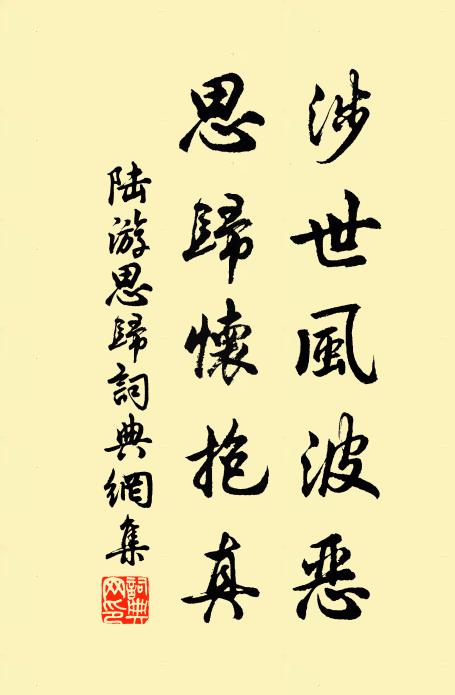 涉世風波恶
思歸懷抱真
陆游思歸詞典網集
詞典網印